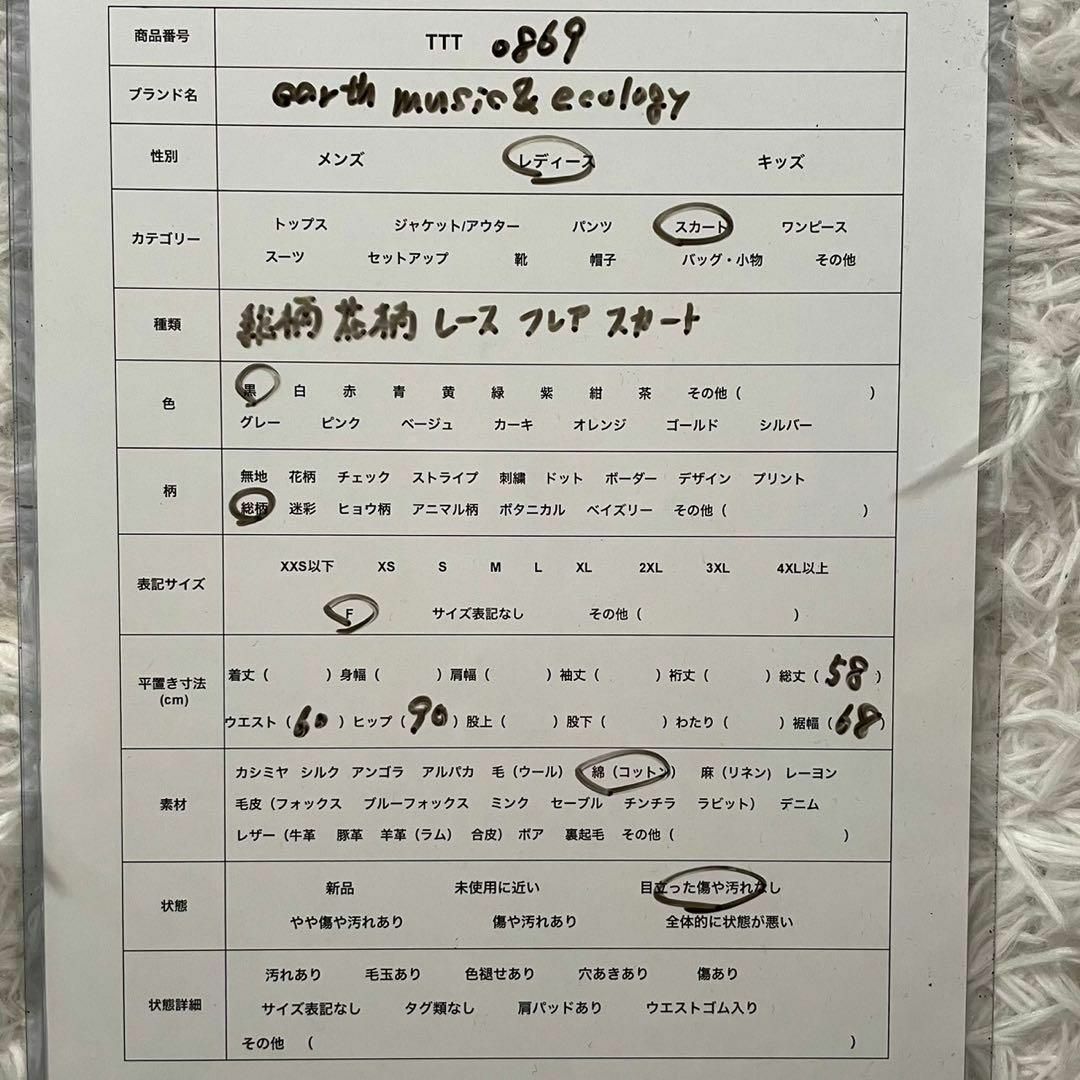 商品番号 TTT 0869
ブランド名 earth music & ecology
性別 メンズ レディース キッズ
カテゴリー
トップス ジャケット/アウター パンツ スカート ワンピース
スーツ セットアップ 靴 帽子 バッグ・小物 その他
種類 総柄 花柄 レース フレア スカート
色
黒 白 赤 青 黄 緑 紫 紺 茶 その他（ ）
グレー ピンク ベージュ カーキ オレンジ ゴールド シルバー
柄
無地 花柄 チェック ストライプ 刺繍 ドット ボーダー デザイン プリント
総柄 迷彩 ヒョウ柄 アニマル柄 ボタニカル ペイズリー その他（ ）
表記サイズ
XXS以下 XS S M L XL 2XL 3XL 4XL以上
F サイズ表記なし その他（ ）
平置き寸法
(cm)
着丈（ ）身幅（ ）肩幅（ ）袖丈（ ）裄丈（ ）総丈（58）
ウエスト（60）ヒップ（90）股上（ ）股下（ ）わたり（ ）裾幅（68）
素材
カシミヤ シルク アンゴラ アルパカ 毛（ウール） 綿（コットン） 麻（リネン） レーヨン
毛皮（フォックス ブルーフォックス ミンク セーブル チンチラ ラビット） デニム
レザー（牛革 豚革 羊革（ラム） 合皮） ボア 裏起毛 その他（ ）
状態
新品 未使用に近い 目立った傷や汚れなし
やや傷や汚れあり 傷や汚れあり 全体的に状態が悪い
状態詳細
汚れあり 毛玉あり 色褪せあり 穴あきあり 傷あり
サイズ表記なし タグ類なし 肩パッドあり ウエストゴム入り
その他 （ ）